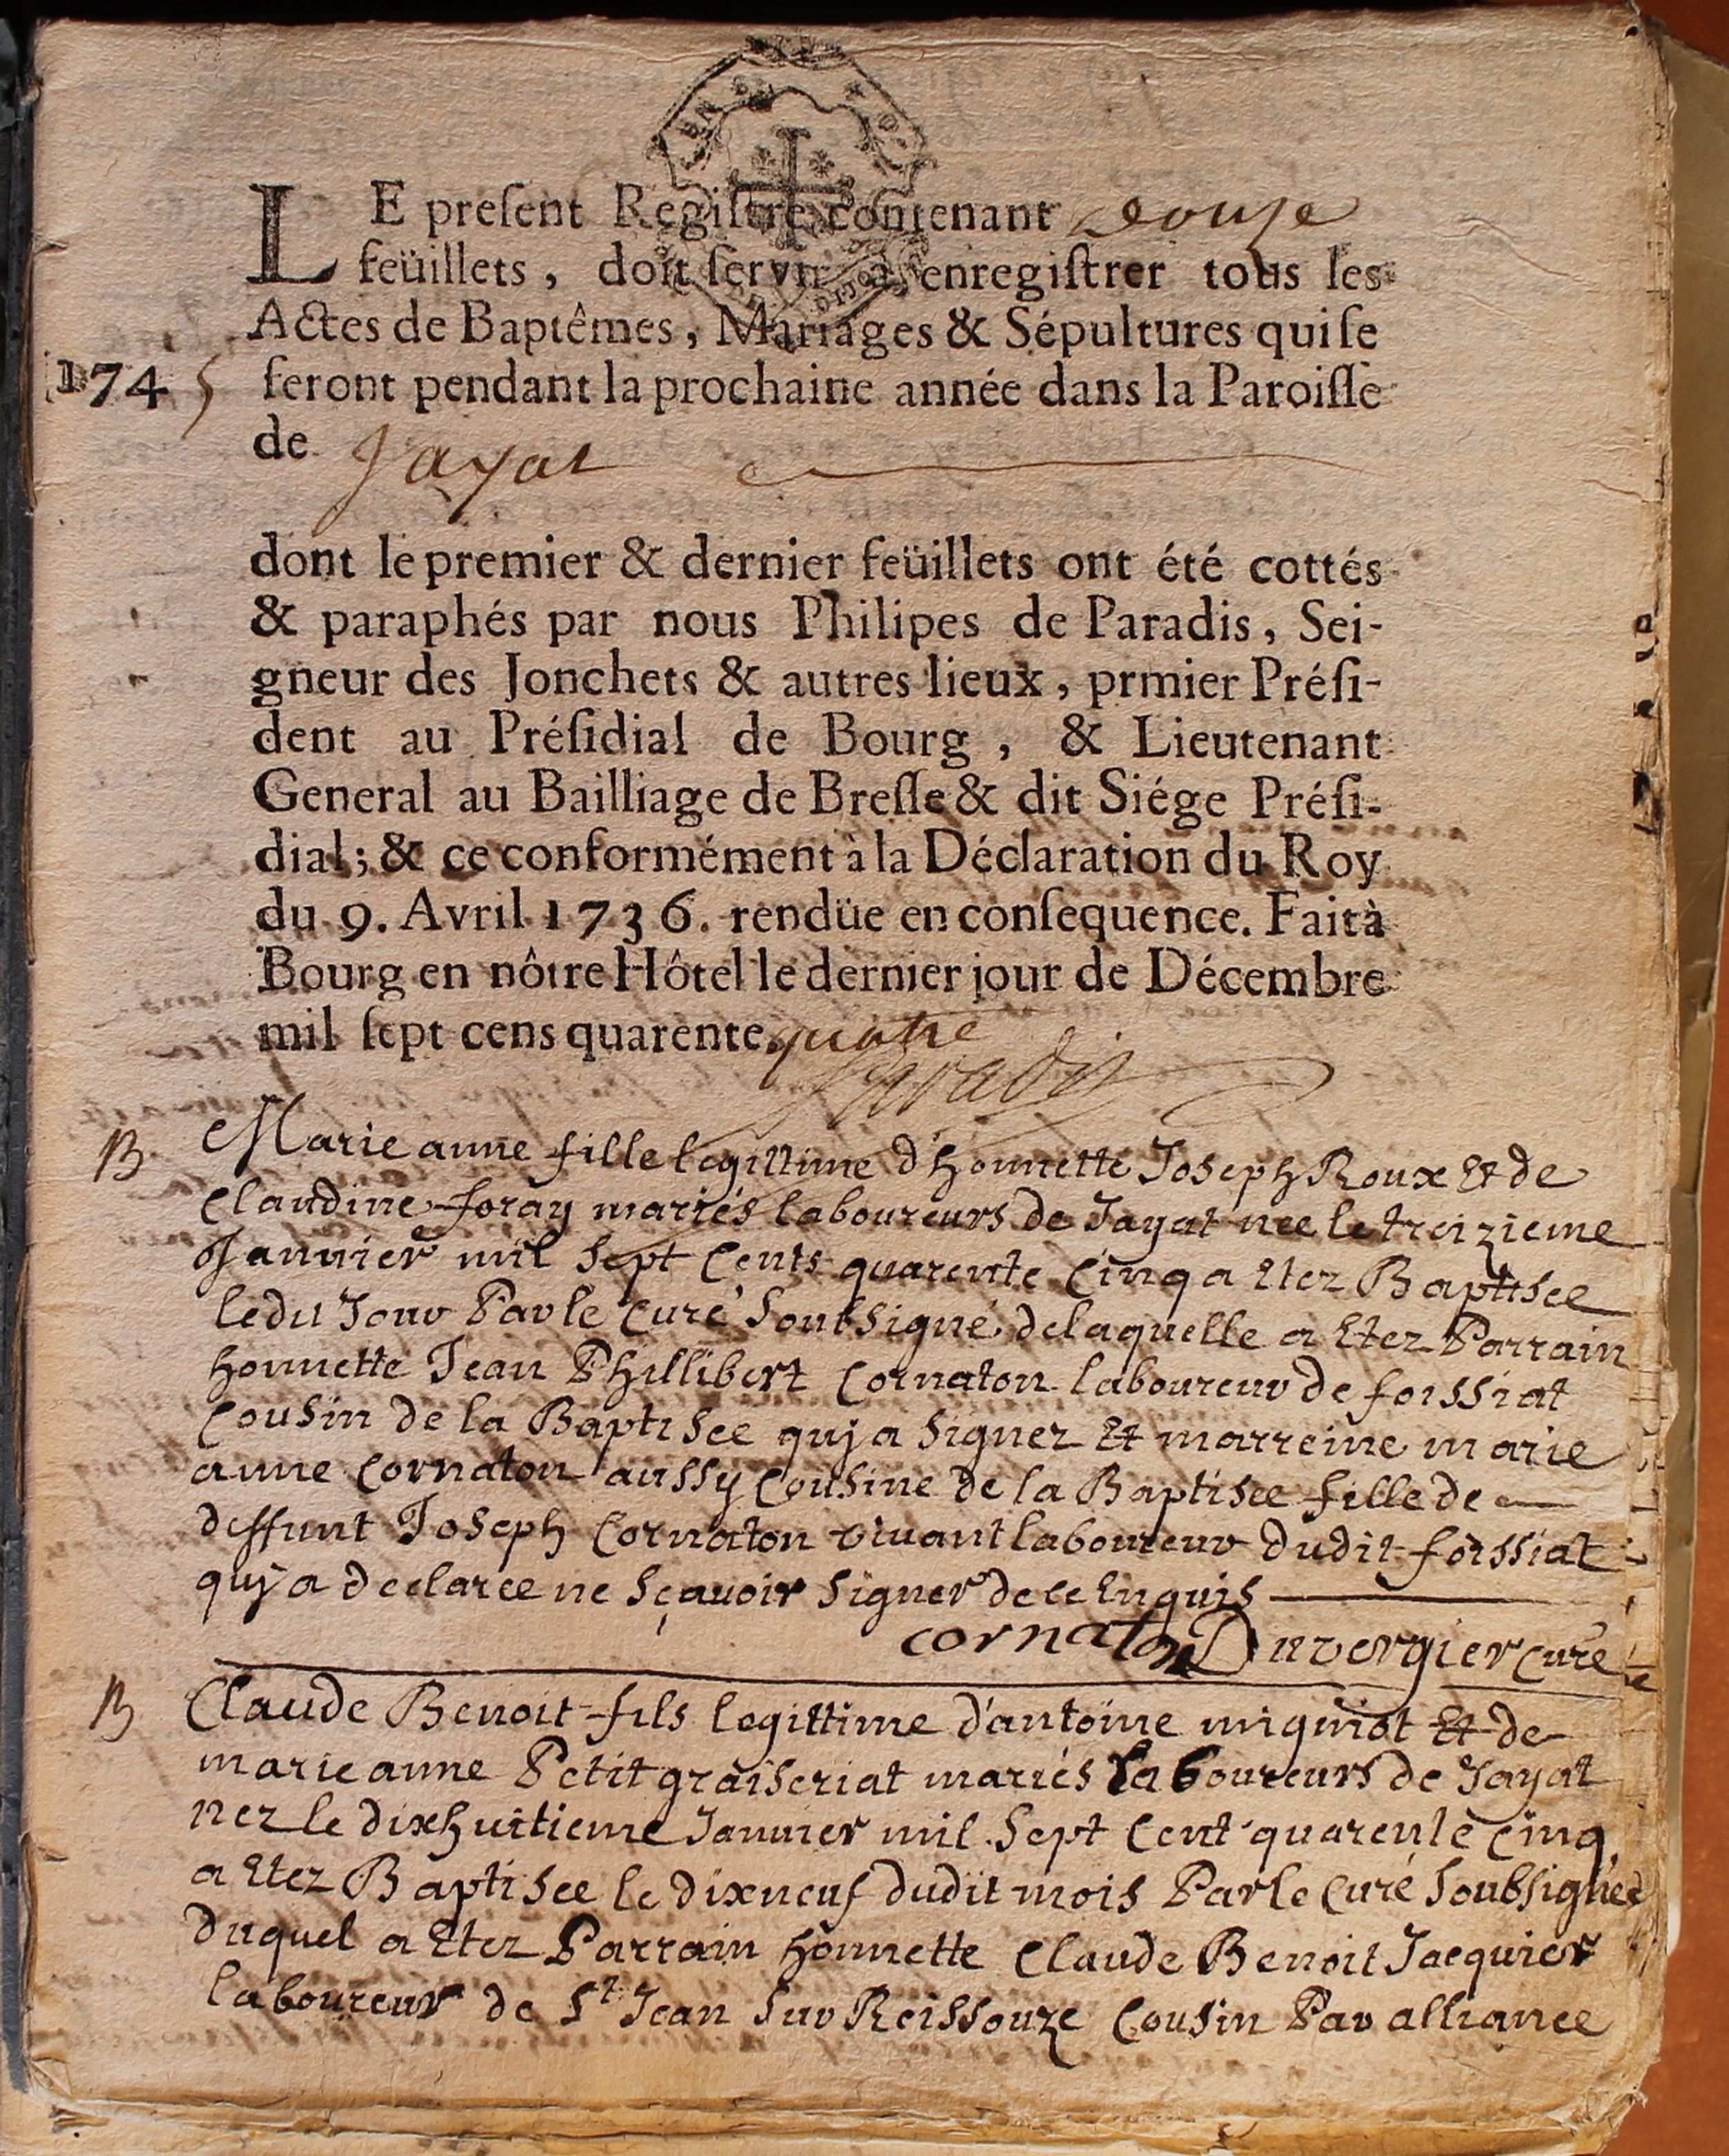 LE preſent Regiſtre contenant Douze
feüillets, doit ſervir à enregiſtrer tous les
Actes de Baptêmes, Mariages & Sépultures qui ſe
1745 feront pendant la prochaine année dans la Paroiſſe
de Jayat
dont le premier & dernier feüillets ont été cottés
& paraphés par nous Philipes de Paradis, Sei-
gneur des Jonchets & autres lieux, prmier Préſi-
dent au Préſidial de Bourg, & Lieutenant
General au Bailliage de Breſſe & dit Siége Préſi-
dial; & ce conformément à la Déclaration du Roy
du 9. Avril 1736. rendüe en conſequence. Fait à
Bourg en nôtre Hôtel le dernier jour de Décembre
mil ſept cens quarente quatre
Paradis
B Marie anne fille legittime d'honnette Joseph Roux Et de
Claudine foray mariés laboureurs de Jayat née le treizieme
Janvier mil Sept Cents quarente Cinq a Etez Baptisee
ledit Jour Par le Curé Soubsigné, de laquelle a Etez Parrain
honnette Jean Phillibert Cornaton laboureur de foissiat
Cousin de la Baptisee quj a Signez Et marreine marie
anne Cornaton aussy Cousine de la Baptisee fille de
deffunt Joseph Cornaton vivant laboureur dudit foissiat
quj a declaree ne Sçavoir Signer de ce Enquis
cornaton Duvergier Curé
B Claude Benoit fils legittime d'antoine migniot Et de
marie anne Petit graiseriat mariés laboureurs de Jayat
nez le dixhuitieme Janvier mil Sept Cent quarente cinq
a Etez Baptisee le dixneuf dudit mois Par le Curé Soubsigné
duquel a Etez Parrain honnette Claude Benoit Jacquier
laboureur de St Jean Sur Reissouze Cousin Par alliance